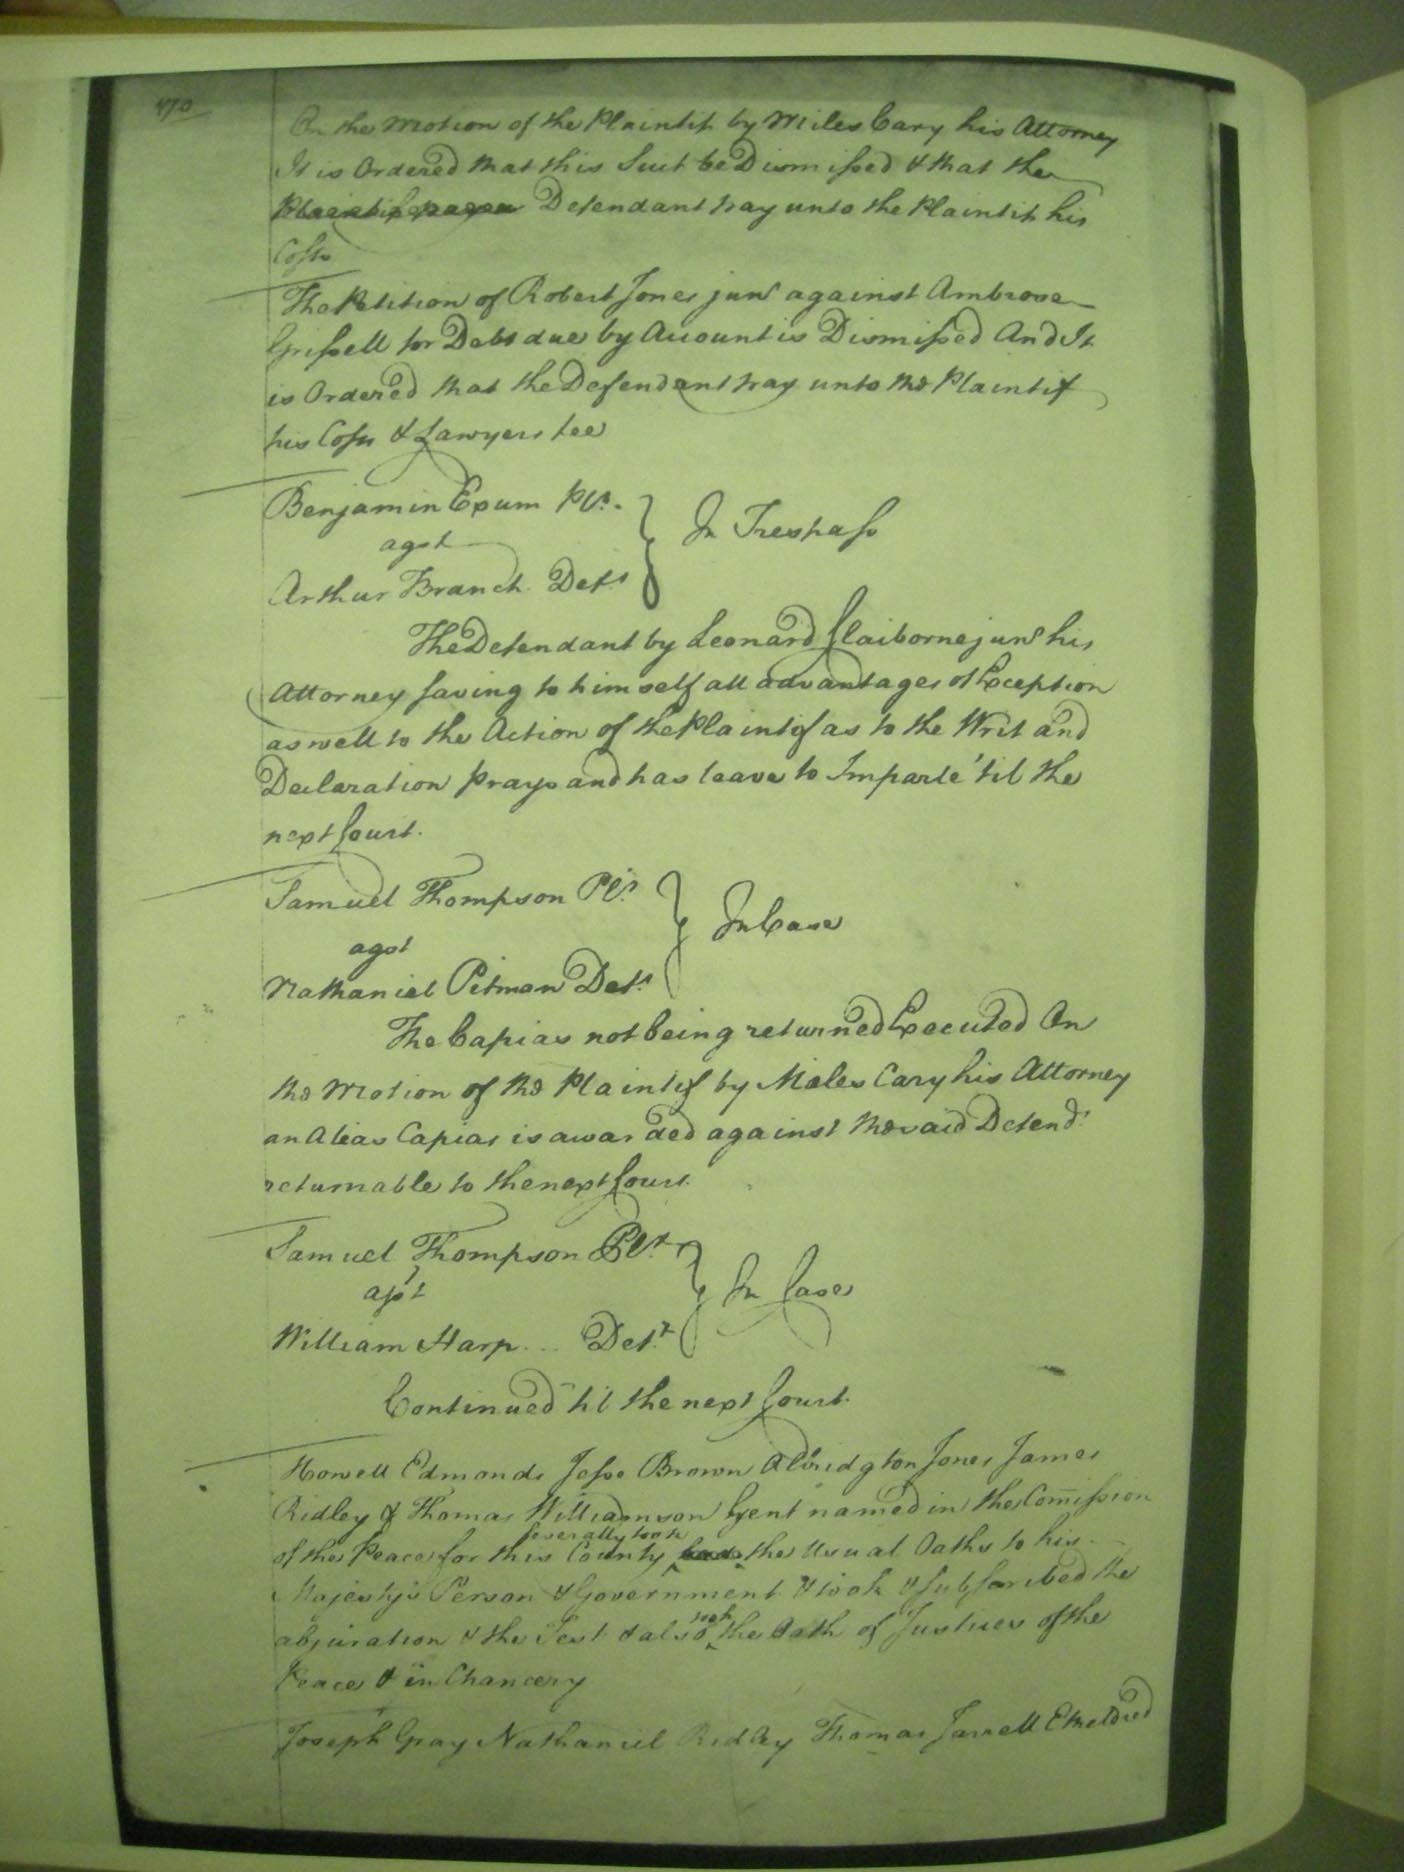 470
On the Motion of the Plaintif by Miles Cary his Attorney
It is Ordered that this Suit be Dismissed & that the
Defendant pay unto the Plaintif his
Costs
The Petition of Robert Jones junr against Ambrose
Grissell for Debt due by Account is Dismissed And It
is Ordered that the Defendant pay unto the Plaintif
his Costs & Lawyers fee
Benjamin Exum Plt.
agst
Arthur Branch Deft.
In Trespass
The Defendant by Leonard Claiborne junr his
Attorney saving to himself all advantages of Exception
as well to the Action of the Plaintif as to the Writ and
Declaration prays and has leave to Imparle 'til the
next Court.
Samuel Thompson Plt.
agst
Nathaniel Pitman Deft.
In Case
The Capias not being returned Executed On
the Motion of the Plaintif by Miles Cary his Attorney
an Alias Capias is awarded against the said Defendt.
returnable to the next Court.
Samuel Thompson Plt.
agst
William Harp... Deft.
In Case
Continued 'til the next Court.
Howell Edmonds Jesse Brown Albridgton Jones James
Ridley & Thomas Williamson Gent named in the Comission
severally took
of the Peace for this County the Usual Oaths to his
Majesty's Person & Government & took & subscribed the
took
abjuration & the Test & also the Oath of Justices of the
Peace & in Chancery
Joseph Gray Nathaniel Ridley Thomas Jarrell Etheldred